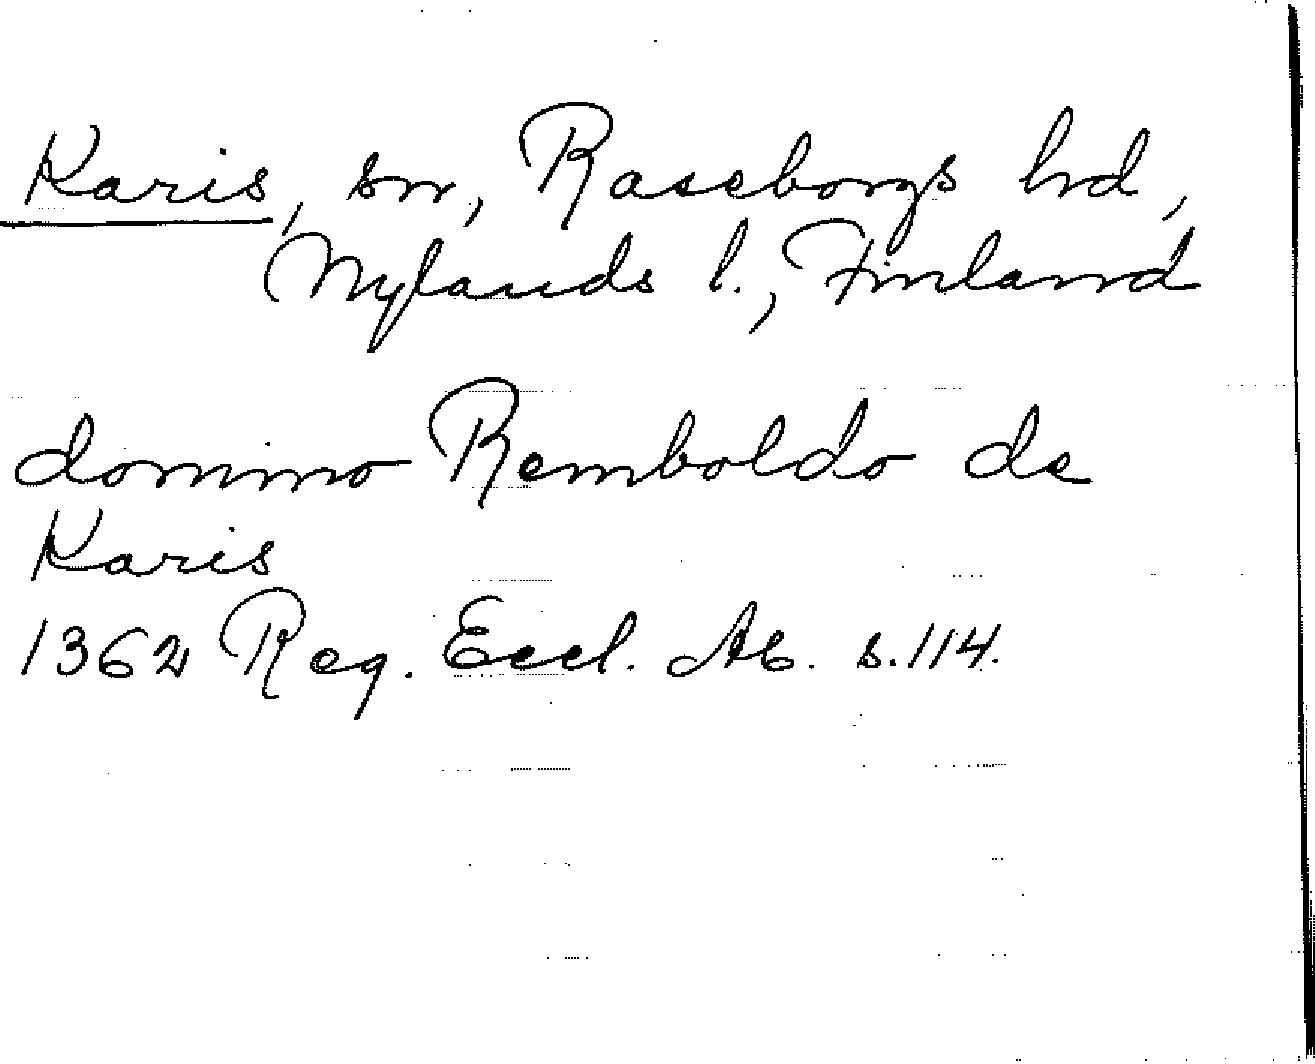 Karis, sn, Raseborgs hd,
Nylands l., Finland
domino Remboldo de
Karis
1362 Reg. Eccl. Ab. s. 114.